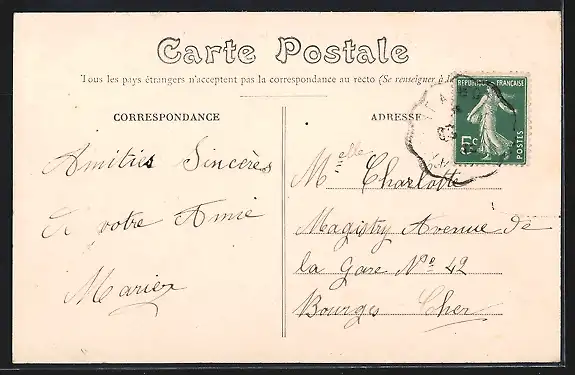 Carte Postale
Tous les pays étrangers n'acceptent pas la correspondance au recto (Se renseigner à la
CORRESPONDANCE
ADRESSE
REPUBLIQUE FRANÇAISE
5 c
POSTES
Amitiés Sincères
de votre Amie
Marie
Melle Charlotte
Magistry Avenue de
la Gare No 42
Bourges Cher